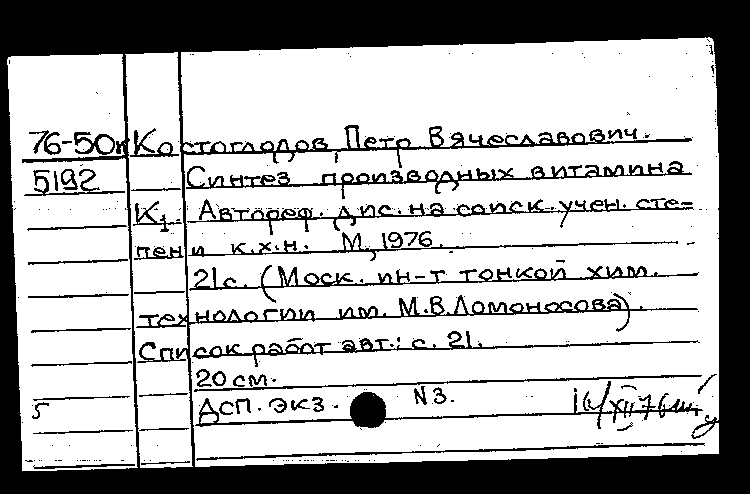 76-50к Костоглодов, Петр Вячеславович.
5192 Синтез производных витамина
К₁. Автореф. дис. на соиск. учен. сте=
пени к.х.н. М., 1976.
21с. (Моск. ин-т тонкой хим.
технологии им. М.В.Ломоносова).
Список работ авт.: с. 21.
20 см.
5 ДСП. экз. N3. 16/XII 76